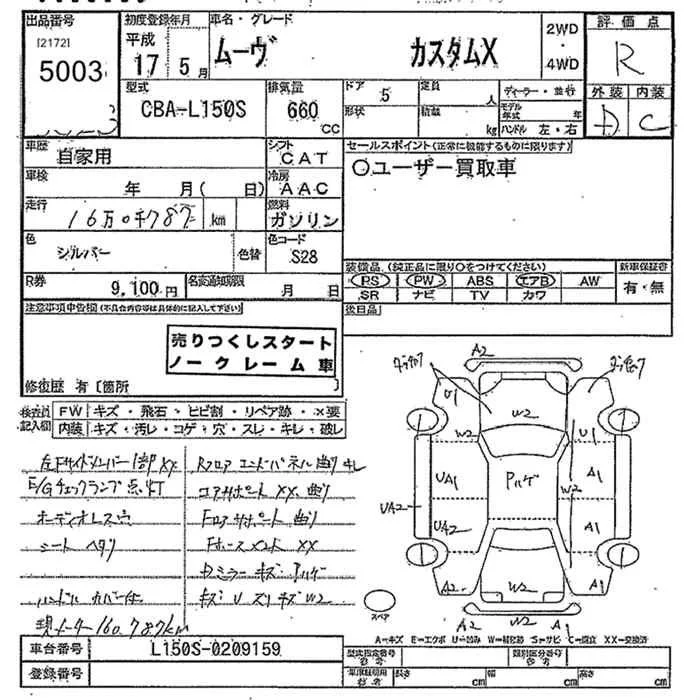 出品番号
[2172]
5003
初度登録年月
平成
17 5 月
車名・グレード
ムーヴ カスタムX
2WD
・
4WD
評価点
R
外装 内装
D C
型式
CBA-L150S
排気量
660
CC
ドア
5
定員
人
形状
積載
kg
ディーラー・並行
モデル
年式 年
ハンドル 左・右
車歴
自家用
シフト
CAT
車検
年 月( 日)
冷房
AAC
走行
16万0千787 km
燃料
ガソリン
色
シルバー
色替
色コード
S28
R券
9,100 円
名変通知期限
月 日
セールスポイント(正常に機能するものに限ります)
○ユーザー買取車
装備品 (純正品に限り○をつけてください)
PS PW ABS エアB AW
SR ナビ TV カワ
新車保証書
有・無
後日品
注意事項申告欄(不具合内容等は具体的に記入して下さい)
売りつくしスタート
ノークレーム車
修復歴 有〔箇所 〕
検査員
記入欄
FW キズ・飛石・ヒビ割・リペア跡・×要
内装 キズ・汚レ・コゲ・穴・スレ・キレ・破レ
左Fサイドメンバー1部XX
E/Gチェックランプ点灯
オーディオレス穴
シート ヘタリ
ハンドル カバー
現メーター160,787km
Rフロア エンドパネル曲り キレ
コアサポート XX、曲り
Fロアサポート 曲り
Fホース XX
Dミラー キズ、ハゲ
キズ U スリキズ W2
A2
U1
W2
W2
U1
W2
Pハゲ
UA1
A1
UA2
UA2
A1
A2
W2
A1
A2
W2
A1
スペア
A=キズ E=エクボ U=凹み W=補修跡 S=サビ C=腐食 XX=交換済
車台番号
L150S-0209159
登録番号
型式指定番号
参考
類別区分番号
参考
車庫証明用
参考
長さ cm
幅 cm
高さ cm